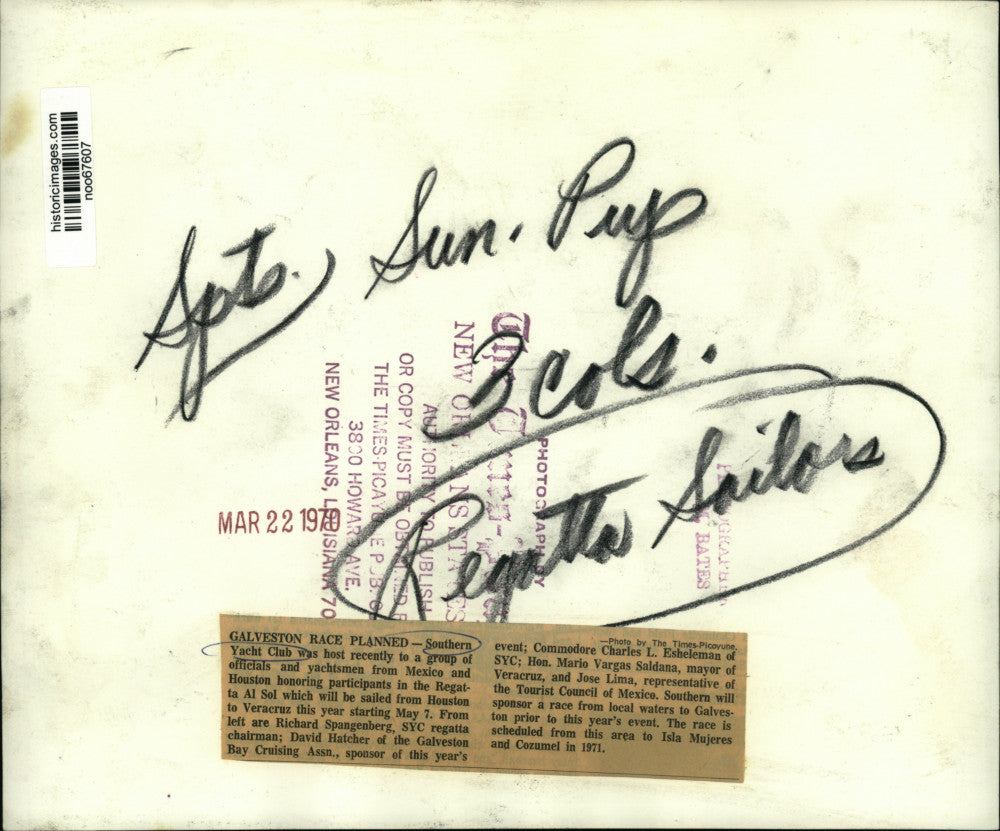 historicimages.com
noo67607
Spts. Sun. Pup
3 cols.
Regatta Sailors
MAR 22 1970
PHOTOGRAPH BY
The
NEW ORLEANS STATES
AUTHORITY TO PUBLISH
OR COPY MUST BE OBTAINED
THE TIMES-PICAYUNE PUB. C
3800 HOWARD AVE.
NEW ORLEANS, LOUISIANA 70
BATES
GALVESTON RACE PLANNED — Southern
Yacht Club was host recently to a group of
officials and yachtsmen from Mexico and
Houston honoring participants in the Regat-
ta Al Sol which will be sailed from Houston
to Veracruz this year starting May 7. From
left are Richard Spangenberg, SYC regatta
chairman; David Hatcher of the Galveston
Bay Cruising Assn., sponsor of this year's
—Photo by The Times-Picayune.
event; Commodore Charles L. Esheleman of
SYC; Hon. Mario Vargas Saldana, mayor of
Veracruz, and Jose Lima, representative of
the Tourist Council of Mexico. Southern will
sponsor a race from local waters to Galves-
ton prior to this year's event. The race is
scheduled from this area to Isla Mujeres
and Cozumel in 1971.